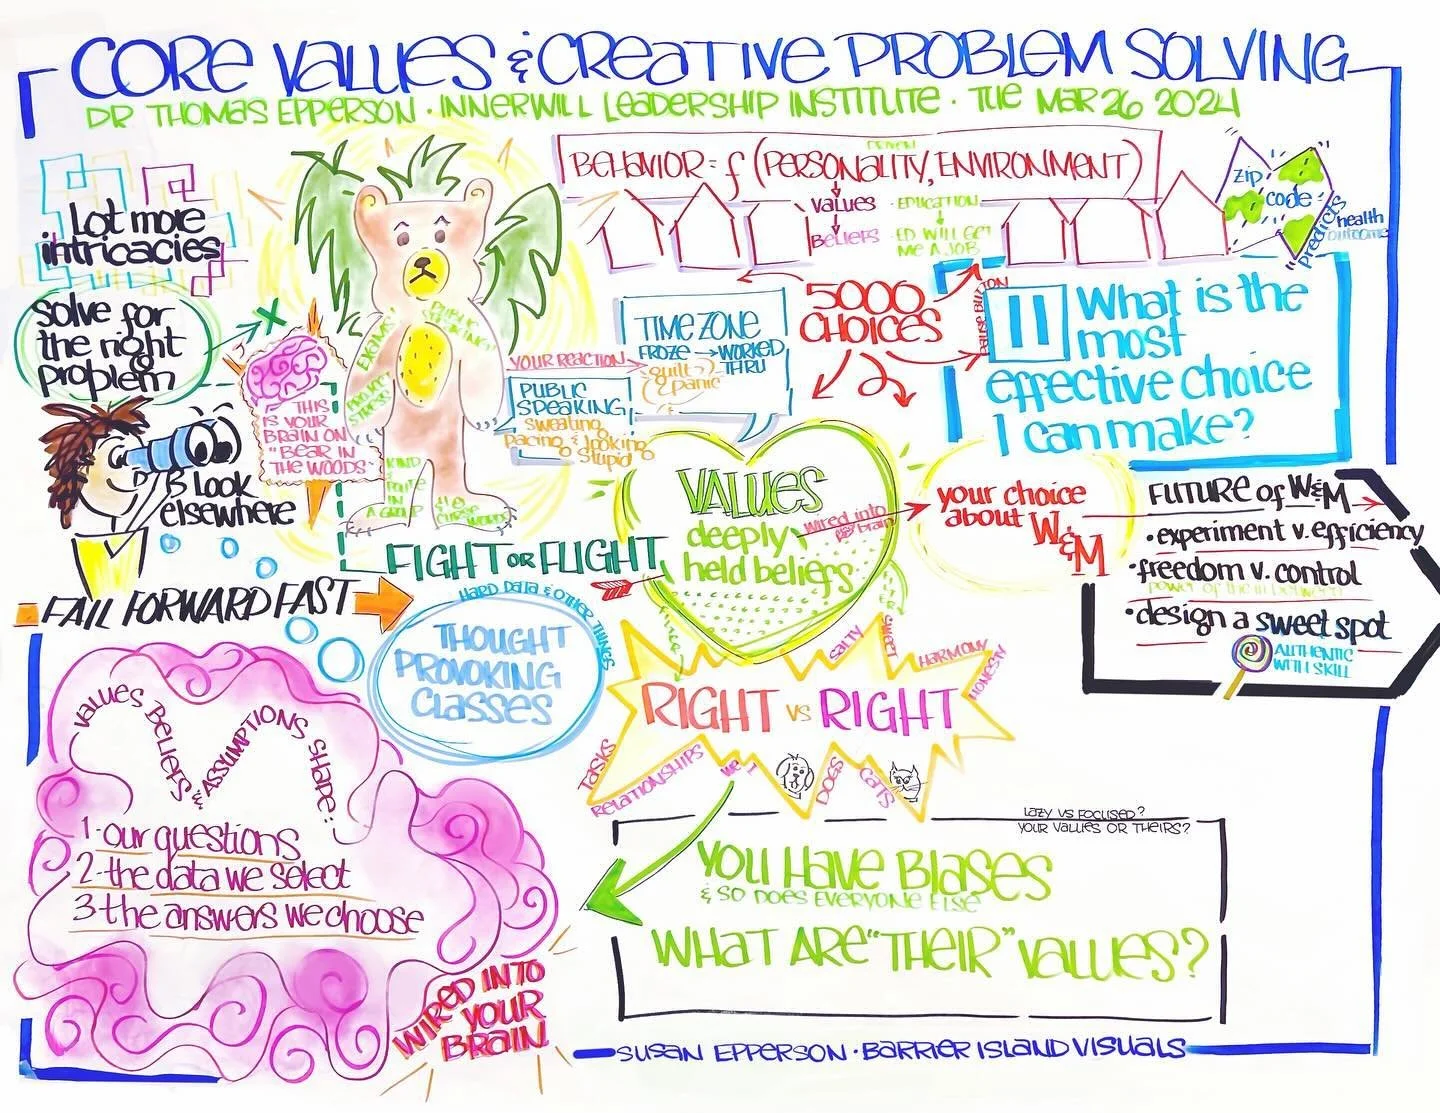 CORE VALUES & CREATIVE PROBLEM SOLVING
DR THOMAS EPPERSON · INNERWILL LEADERSHIP INSTITUTE · TUE MAR 26 2024
Lot more
intricacies
Solve for
the right
problem
Look
elsewhere
FAIL FORWARD FAST
THIS
IS YOUR
BRAIN ON
"BEAR IN
THE WOODS"
EXAMS!
PUBLIC
SPEAKING!
KIND
ROUTE
IN
A GROUP
CURSE WORDS
FIGHT OR FLIGHT
BEHAVIOR = f (PERSONALITY, ENVIRONMENT)
DRIVEN
VALUES
BELIEFS
· EDUCATION
· ED WILL GET
ME A JOB
zip
code
"predicts
health
outcome
YOUR REACTION
PUBLIC
SPEAKING
sweating
pacing & looking
stupid
TIME ZONE
FROZE → WORKED
THRU
guilt
& panic
5000
CHOICES
PAUSE BUTTON
What is the
most
effective choice
I can make?
VALUES
deeply
held beliefs
wired into
brain
your choice
about W&M
FUTURE OF W&M
· experiment v. efficiency
· freedom v. control
power of the in between
· design a sweet spot
AUTHENTIC
WITH SKILL
HARD DATA & OTHER THINGS
THOUGHT
PROVOKING
CLASSES
RIGHT vs RIGHT
SALTY
SWEET
HARMONY
HONESTY
TASKS
RELATIONSHIPS
WE
I
DOGS
CATS
VALUES BELIEFS & ASSUMPTIONS SHAPE:
1 - our questions
2 - the data we select
3 - the answers we choose
WIRED INTO
YOUR
BRAIN
LAZY VS FOCUSED?
YOUR VALUES OR THEIRS?
YOU HAVE BIASES
& SO DOES EVERYONE ELSE
WHAT ARE "THEIR" VALUES?
SUSAN EPPERSON · BARRIER ISLAND VISUALS